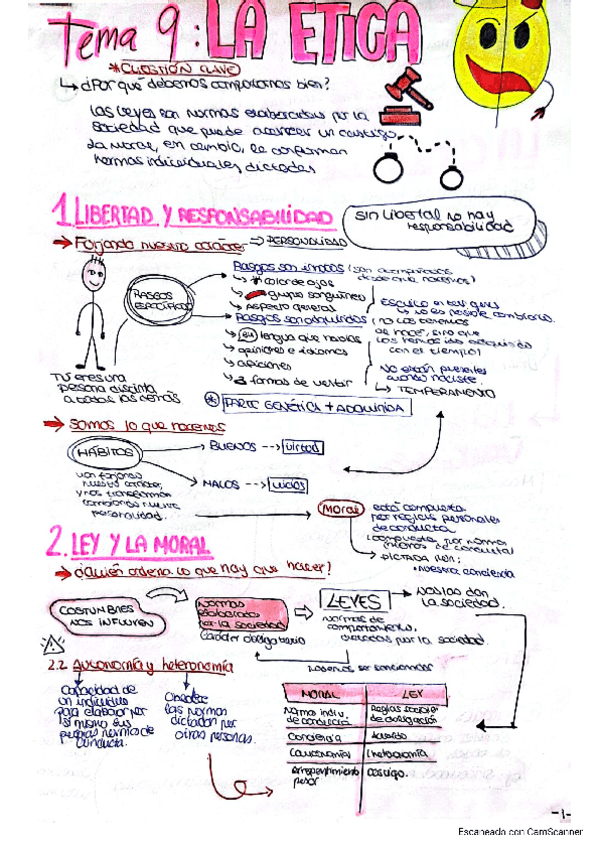 Tema 9: LA ETICA
*CUESTIÓN CLAVE
↳ ¿Por qué debemos comportarnos bien?
Las leyes son normas elaboradas por la
sociedad que puede acarrear un castigo
La moral, en cambio, la conforman
normas individuales, dictadas
1 LIBERTAD Y RESPONSABILIDAD
Sin libertad no hay
responsabilidad
→ Forjando nuestro carácter → PERSONALIDAD
RASGOS
ESPECÍFICOS
Rasgos son innatos (son
↳ *color de ojos
↳ grupo sanguíneo
↳ Aspecto general
Rasgos son adquiridos
↳ lengua que hablas
↳ opiniones e idiomas
↳ aficiones
↳ 3 formas de vestir
↳ no es posible cambiarlo.
(no los tenemos
al nacer, sino que
los hemos ido adquirido
con el tiempo)
No están presentes
cuando naciste.
↳ TEMPERAMENTO
Tú eres una
persona distinta
a todas las demás
* PARTE GENÉTICA + ADQUIRIDA
→ Somos lo que hacemos
HÁBITOS
→ BUENOS --> virtud
→ MALOS --> vicios
van forjando
nuestro carácter,
y nos transforman
cambiando nuestra
personalidad.
Moral
está compuesta
por reglas personales
de conducta
(compuesta por normas
de conducta)
DICTADA POR:
• nuestra conciencia
2. LEY Y LA MORAL
→ ¿Quién ordena lo que hay que hacer?
COSTUMBRES
NOS INFLUYEN
Normas
elaboradas
por la sociedad
Carácter obligatorio
LEYES
Normas de
comportamiento,
dictadas por la sociedad.
Nos las dan
la sociedad.
2.2 Autonomía y heteronomía
Capacidad de
un individuo
para elaborar por
sí mismo sus
propias normas de
conducta.
Obedecer
las normas
dictadas por
otras personas.
MORAL LEY
Norma indiv. Reglas sociales
de conducta de obligación
Conciencia
(autonomía) (heteronomía)
arrepentimiento castigo.
pesar
-1-
Escaneado con CamScanner